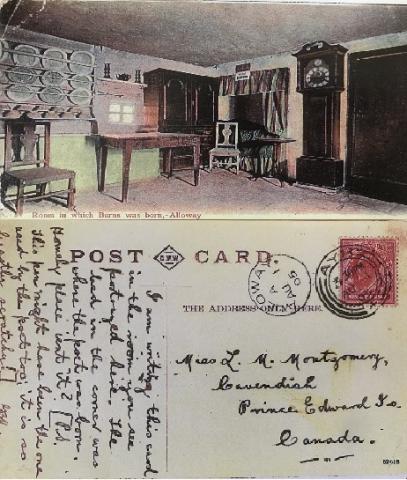 Room in which Burns was born,-Alloway
POST CARD.
G.P.W
THE ADDRESS ONLY HERE.
I am writing this card
in the room you see
portrayed here. The
bed in the corner was
where the poet was born.
Homely place isn't it? [P.S.
This pen might have been the one
used by the poet too, it is so
Miss L. M. Montgomery,
Cavendish
Prince Edward Is.
Canada.